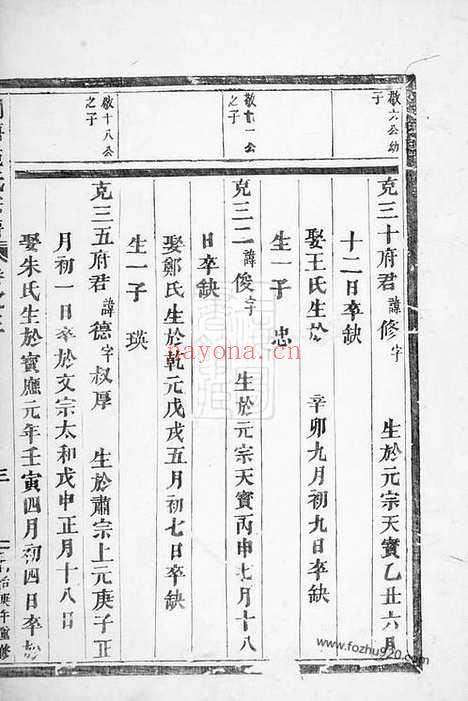 敬六公幼子
克三十府君諱修字 生於元宗天寶乙丑六月
十二日卒缺
娶王氏生於 辛卯九月初九日卒缺
生一子 忠
敬十一公之子
克三二諱俊字 生於元宗天寶丙申七月十八
日卒缺
娶鄭氏生於乾元戊戌五月初七日卒缺
生一子 瑛
敬十八公之子
克三五府君諱德字叔厚 生於肅宗上元庚子正
月初一日卒於文宗太和戊申正月十八日
娶朱氏生於寶應元年壬寅四月初四日卒於
三
庚午重修
nayona.cn
www.fozhu920.com